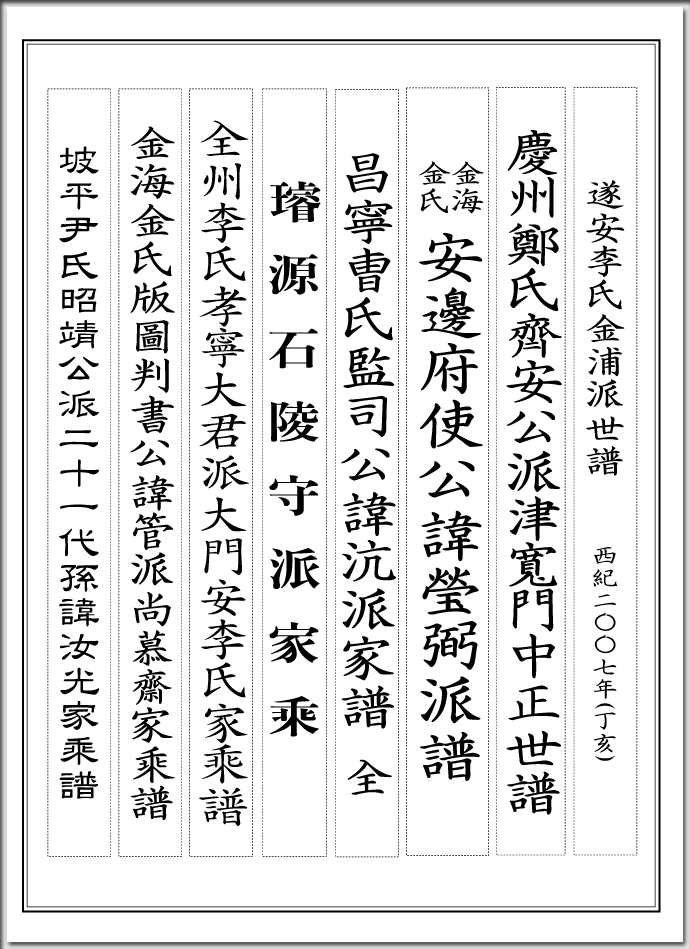 遂安李氏金浦派世譜 西紀二〇〇七年(丁亥)
慶州鄭氏齊安公派津寬門中正世譜
金海金氏 安邊府使公諱瑩弼派譜
昌寧曺氏監司公諱沆派家譜 全
璿源石陵守派家乘
全州李氏孝寧大君派大門安李氏家乘譜
金海金氏版圖判書公諱管派尚慕齋家乘譜
坡平尹氏昭靖公派二十一代孫諱汝光家乘譜